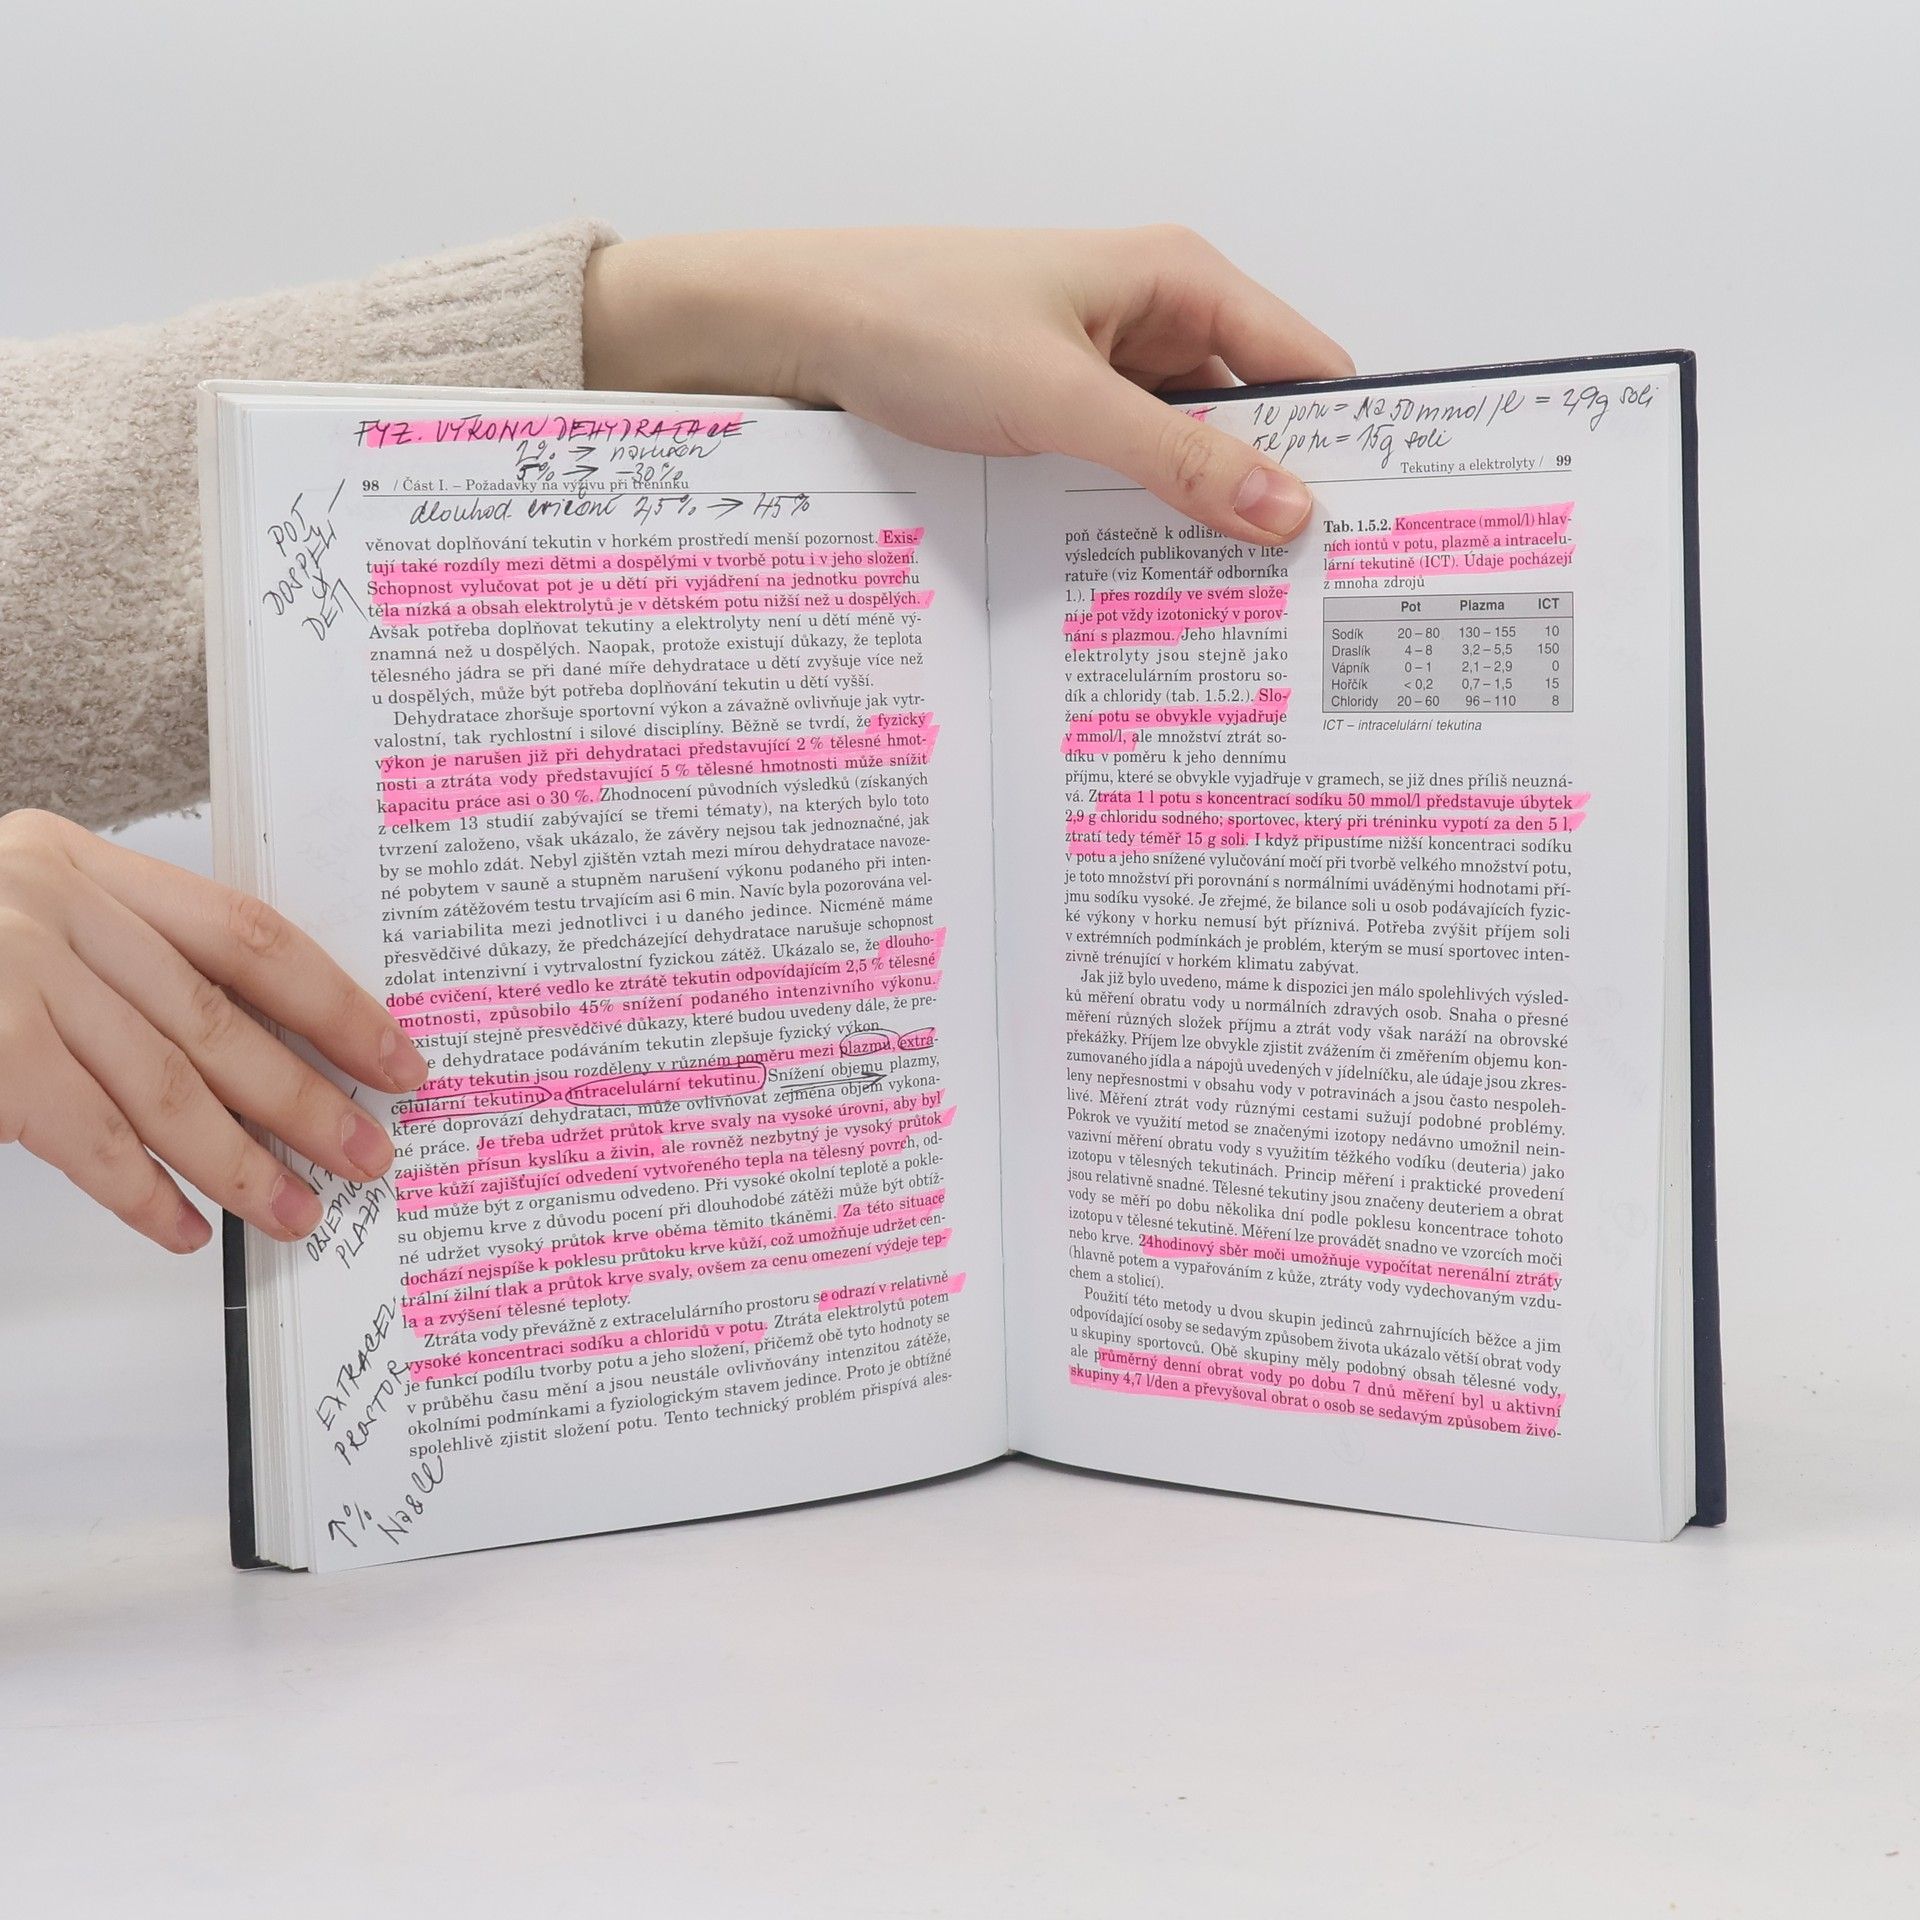 FYZ. VÝKON N DEHYDRATACE
2% → narušen
5% → -30%
98 / Část I. – Požadavky na výživu při tréninku
dlouhod. cvičení 2,5% → 45%
POT
DOSPĚLÍ
X
DĚTI
věnovat doplňování tekutin v horkém prostředí menší pozornost. Exis-
tují také rozdíly mezi dětmi a dospělými v tvorbě potu i v jeho složení.
Schopnost vylučovat pot je u dětí při vyjádření na jednotku povrchu
těla nízká a obsah elektrolytů je v dětském potu nižší než u dospělých.
Avšak potřeba doplňovat tekutiny a elektrolyty není u dětí méně vý-
znamná než u dospělých. Naopak, protože existují důkazy, že teplota
tělesného jádra se při dané míře dehydratace u dětí zvyšuje více než
u dospělých, může být potřeba doplňování tekutin u dětí vyšší.
Dehydratace zhoršuje sportovní výkon a závažně ovlivňuje jak vytr-
valostní, tak rychlostní i silové disciplíny. Běžně se tvrdí, že fyzický
výkon je narušen již při dehydrataci představující 2 % tělesné hmot-
nosti a ztráta vody představující 5 % tělesné hmotnosti může snížit
kapacitu práce asi o 30 %. Zhodnocení původních výsledků (získaných
z celkem 13 studií zabývající se třemi tématy), na kterých bylo toto
tvrzení založeno, však ukázalo, že závěry nejsou tak jednoznačné, jak
by se mohlo zdát. Nebyl zjištěn vztah mezi mírou dehydratace navoze-
né pobytem v sauně a stupněm narušení výkonu podaného při inten-
zivním zátěžovém testu trvajícím asi 6 min. Navíc byla pozorována vel-
ká variabilita mezi jednotlivci i u daného jedince. Nicméně máme
přesvědčivé důkazy, že předcházející dehydratace narušuje schopnost
zdolat intenzivní i vytrvalostní fyzickou zátěž. Ukázalo se, že dlouho-
dobé cvičení, které vedlo ke ztrátě tekutin odpovídajícím 2,5 % tělesné
motnosti, způsobilo 45% snížení podaného intenzivního výkonu.
xistují stejně přesvědčivé důkazy, které budou uvedeny dále, že pre-
e dehydratace podáváním tekutin zlepšuje fyzický výkon.
tráty tekutin jsou rozděleny v různém poměru mezi plazmu, extra-
celulární tekutinu a intracelulární tekutinu. Snížení objemu plazmy,
které doprovází dehydrataci, může ovlivňovat zejména objem vykona-
né práce. Je třeba udržet průtok krve svaly na vysoké úrovni, aby byl
zajištěn přísun kyslíku a živin, ale rovněž nezbytný je vysoký průtok
krve kůží zajišťující odvedení vytvořeného tepla na tělesný povrch, od-
kud může být z organismu odvedeno. Při vysoké okolní teplotě a pokle-
su objemu krve z důvodu pocení při dlouhodobé zátěži může být obtíž-
né udržet vysoký průtok krve oběma těmito tkáněmi. Za této situace
dochází nejspíše k poklesu průtoku krve kůží, což umožňuje udržet cen-
trální žilní tlak a průtok krve svaly, ovšem za cenu omezení výdeje tep-
la a zvýšení tělesné teploty.
Ztráta vody převážně z extracelulárního prostoru se odrazí v relativně
vysoké koncentraci sodíku a chloridů v potu. Ztráta elektrolytů potem
je funkcí podílu tvorby potu a jeho složení, přičemž obě tyto hodnoty se
v průběhu času mění a jsou neustále ovlivňovány intenzitou zátěže,
okolními podmínkami a fyziologickým stavem jedince. Proto je obtížné
spolehlivě zjistit složení potu. Tento technický problém přispívá ales-
OBJEMU
PLAZMY
EXTRACEL.
PROSTOR
↑%
Na & Cl
1l potu = Na 50 mmol/l = 2,9g soli
5l potu = 15g soli
Tekutiny a elektrolyty / 99
poň částečně k
výsledcích publikovaných v lite-
ratuře (viz Komentář odborníka
1.). I přes rozdíly ve svém slože-
ní je pot vždy izotonický v porov-
nání s plazmou. Jeho hlavními
elektrolyty jsou stejně jako
v extracelulárním prostoru so-
dík a chloridy (tab. 1.5.2.). Slo-
žení potu se obvykle vyjadřuje
v mmol/l, ale množství ztrát so-
díku v poměru k jeho dennímu
Tab. 1.5.2. Koncentrace (mmol/l) hlav-
ních iontů v potu, plazmě a intracelu-
lární tekutině (ICT). Údaje pocházejí
z mnoha zdrojů
Pot Plazma ICT
Sodík 20 – 80 130 – 155 10
Draslík 4 – 8 3,2 – 5,5 150
Vápník 0 – 1 2,1 – 2,9 0
Hořčík < 0,2 0,7 – 1,5 15
Chloridy 20 – 60 96 – 110 8
ICT – intracelulární tekutina
příjmu, které se obvykle vyjadřuje v gramech, se již dnes příliš neuzná-
vá. Ztráta 1 l potu s koncentrací sodíku 50 mmol/l představuje úbytek
2,9 g chloridu sodného; sportovec, který při tréninku vypotí za den 5 l,
ztratí tedy téměř 15 g soli. I když připustíme nižší koncentraci sodíku
v potu a jeho snížené vylučování močí při tvorbě velkého množství potu,
je toto množství při porovnání s normálními uváděnými hodnotami pří-
jmu sodíku vysoké. Je zřejmé, že bilance soli u osob podávajících fyzic-
ké výkony v horku nemusí být příznivá. Potřeba zvýšit příjem soli
v extrémních podmínkách je problém, kterým se musí sportovec inten-
zivně trénující v horkém klimatu zabývat.
Jak již bylo uvedeno, máme k dispozici jen málo spolehlivých výsled-
ků měření obratu vody u normálních zdravých osob. Snaha o přesné
měření různých složek příjmu a ztrát vody však naráží na obrovské
překážky. Příjem lze obvykle zjistit zvážením či změřením objemu kon-
zumovaného jídla a nápojů uvedených v jídelníčku, ale údaje jsou zkres-
leny nepřesnostmi v obsahu vody v potravinách a jsou často nespoleh-
livé. Měření ztrát vody různými cestami sužují podobné problémy.
Pokrok ve využití metod se značenými izotopy nedávno umožnil nein-
vazivní měření obratu vody s využitím těžkého vodíku (deuteria) jako
izotopu v tělesných tekutinách. Princip měření i praktické provedení
jsou relativně snadné. Tělesné tekutiny jsou značeny deuteriem a obrat
vody se měří po dobu několika dní podle poklesu koncentrace tohoto
izotopu v tělesné tekutině. Měření lze provádět snadno ve vzorcích moči
nebo krve. 24hodinový sběr moči umožňuje vypočítat nerenální ztráty
(hlavně potem a vypařováním z kůže, ztráty vody vydechovaným vzdu-
chem a stolicí).
Použití této metody u dvou skupin jedinců zahrnujících běžce a jim
odpovídající osoby se sedavým způsobem života ukázalo větší obrat vody
u skupiny sportovců. Obě skupiny měly podobný obsah tělesné vody,
ale průměrný denní obrat vody po dobu 7 dnů měření byl u aktivní
skupiny 4,7 l/den a převyšoval obrat o osob se sedavým způsobem živo-